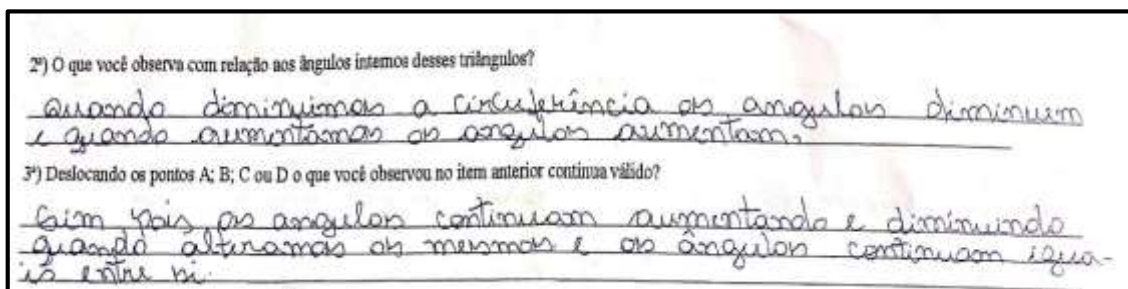 2ª) O que você observa com relação aos ângulos internos desses triângulos?
Quando diminuimos a circuferência os angulos diminuem
e quando aumentamos os angulos aumentam,
3ª) Deslocando os pontos A; B; C ou D o que você observou no item anterior continua válido?
Sim pois os angulos continuam aumentando e diminuindo
quando alteramos os mesmos e os ângulos continuam igua-
is entre si.